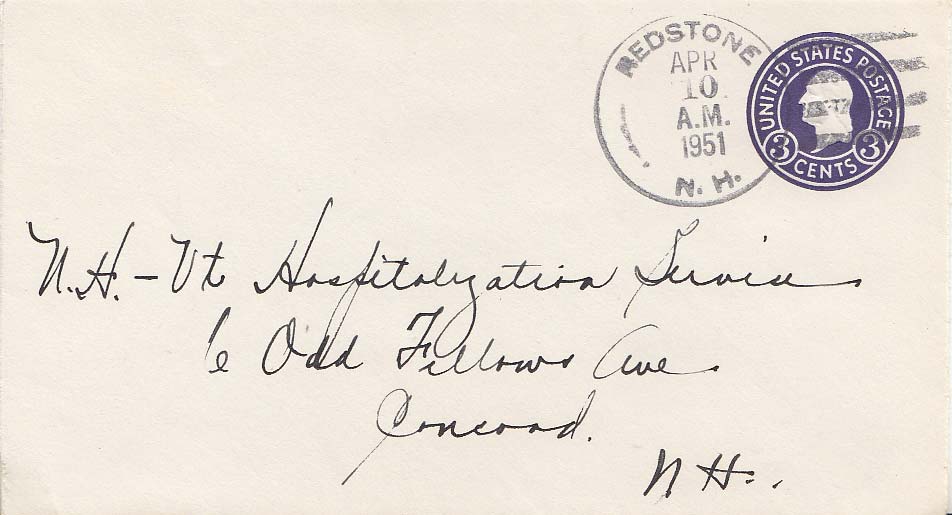 REDSTONE
APR
10
A.M.
1951
N. H.
UNITED STATES POSTAGE
3 CENTS 3
N.H. - Vt Hospitalization Service
6 Odd Fellows Ave.
Concord.
N H.